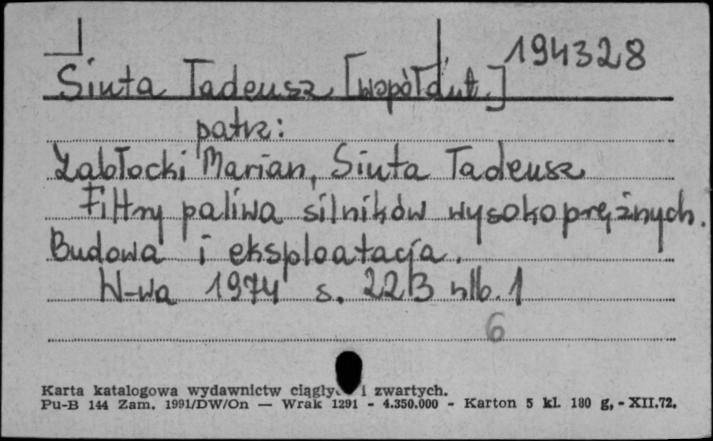 194328
Siuta Tadeusz [współaut.]
patrz:
Zabłocki Marian, Siuta Tadeusz
Filtry paliwa silników wysokoprężnych.
Budowa i eksploatacja.
W-wa 1974 s. 22/3 nlb. 1
6
Karta katalogowa wydawnictw ciągły i zwartych.
Pu-B 144 Zam. 1991/DW/On — Wrak 1291 - 4.350.000 - Karton 5 kl. 180 g, - XII.72.